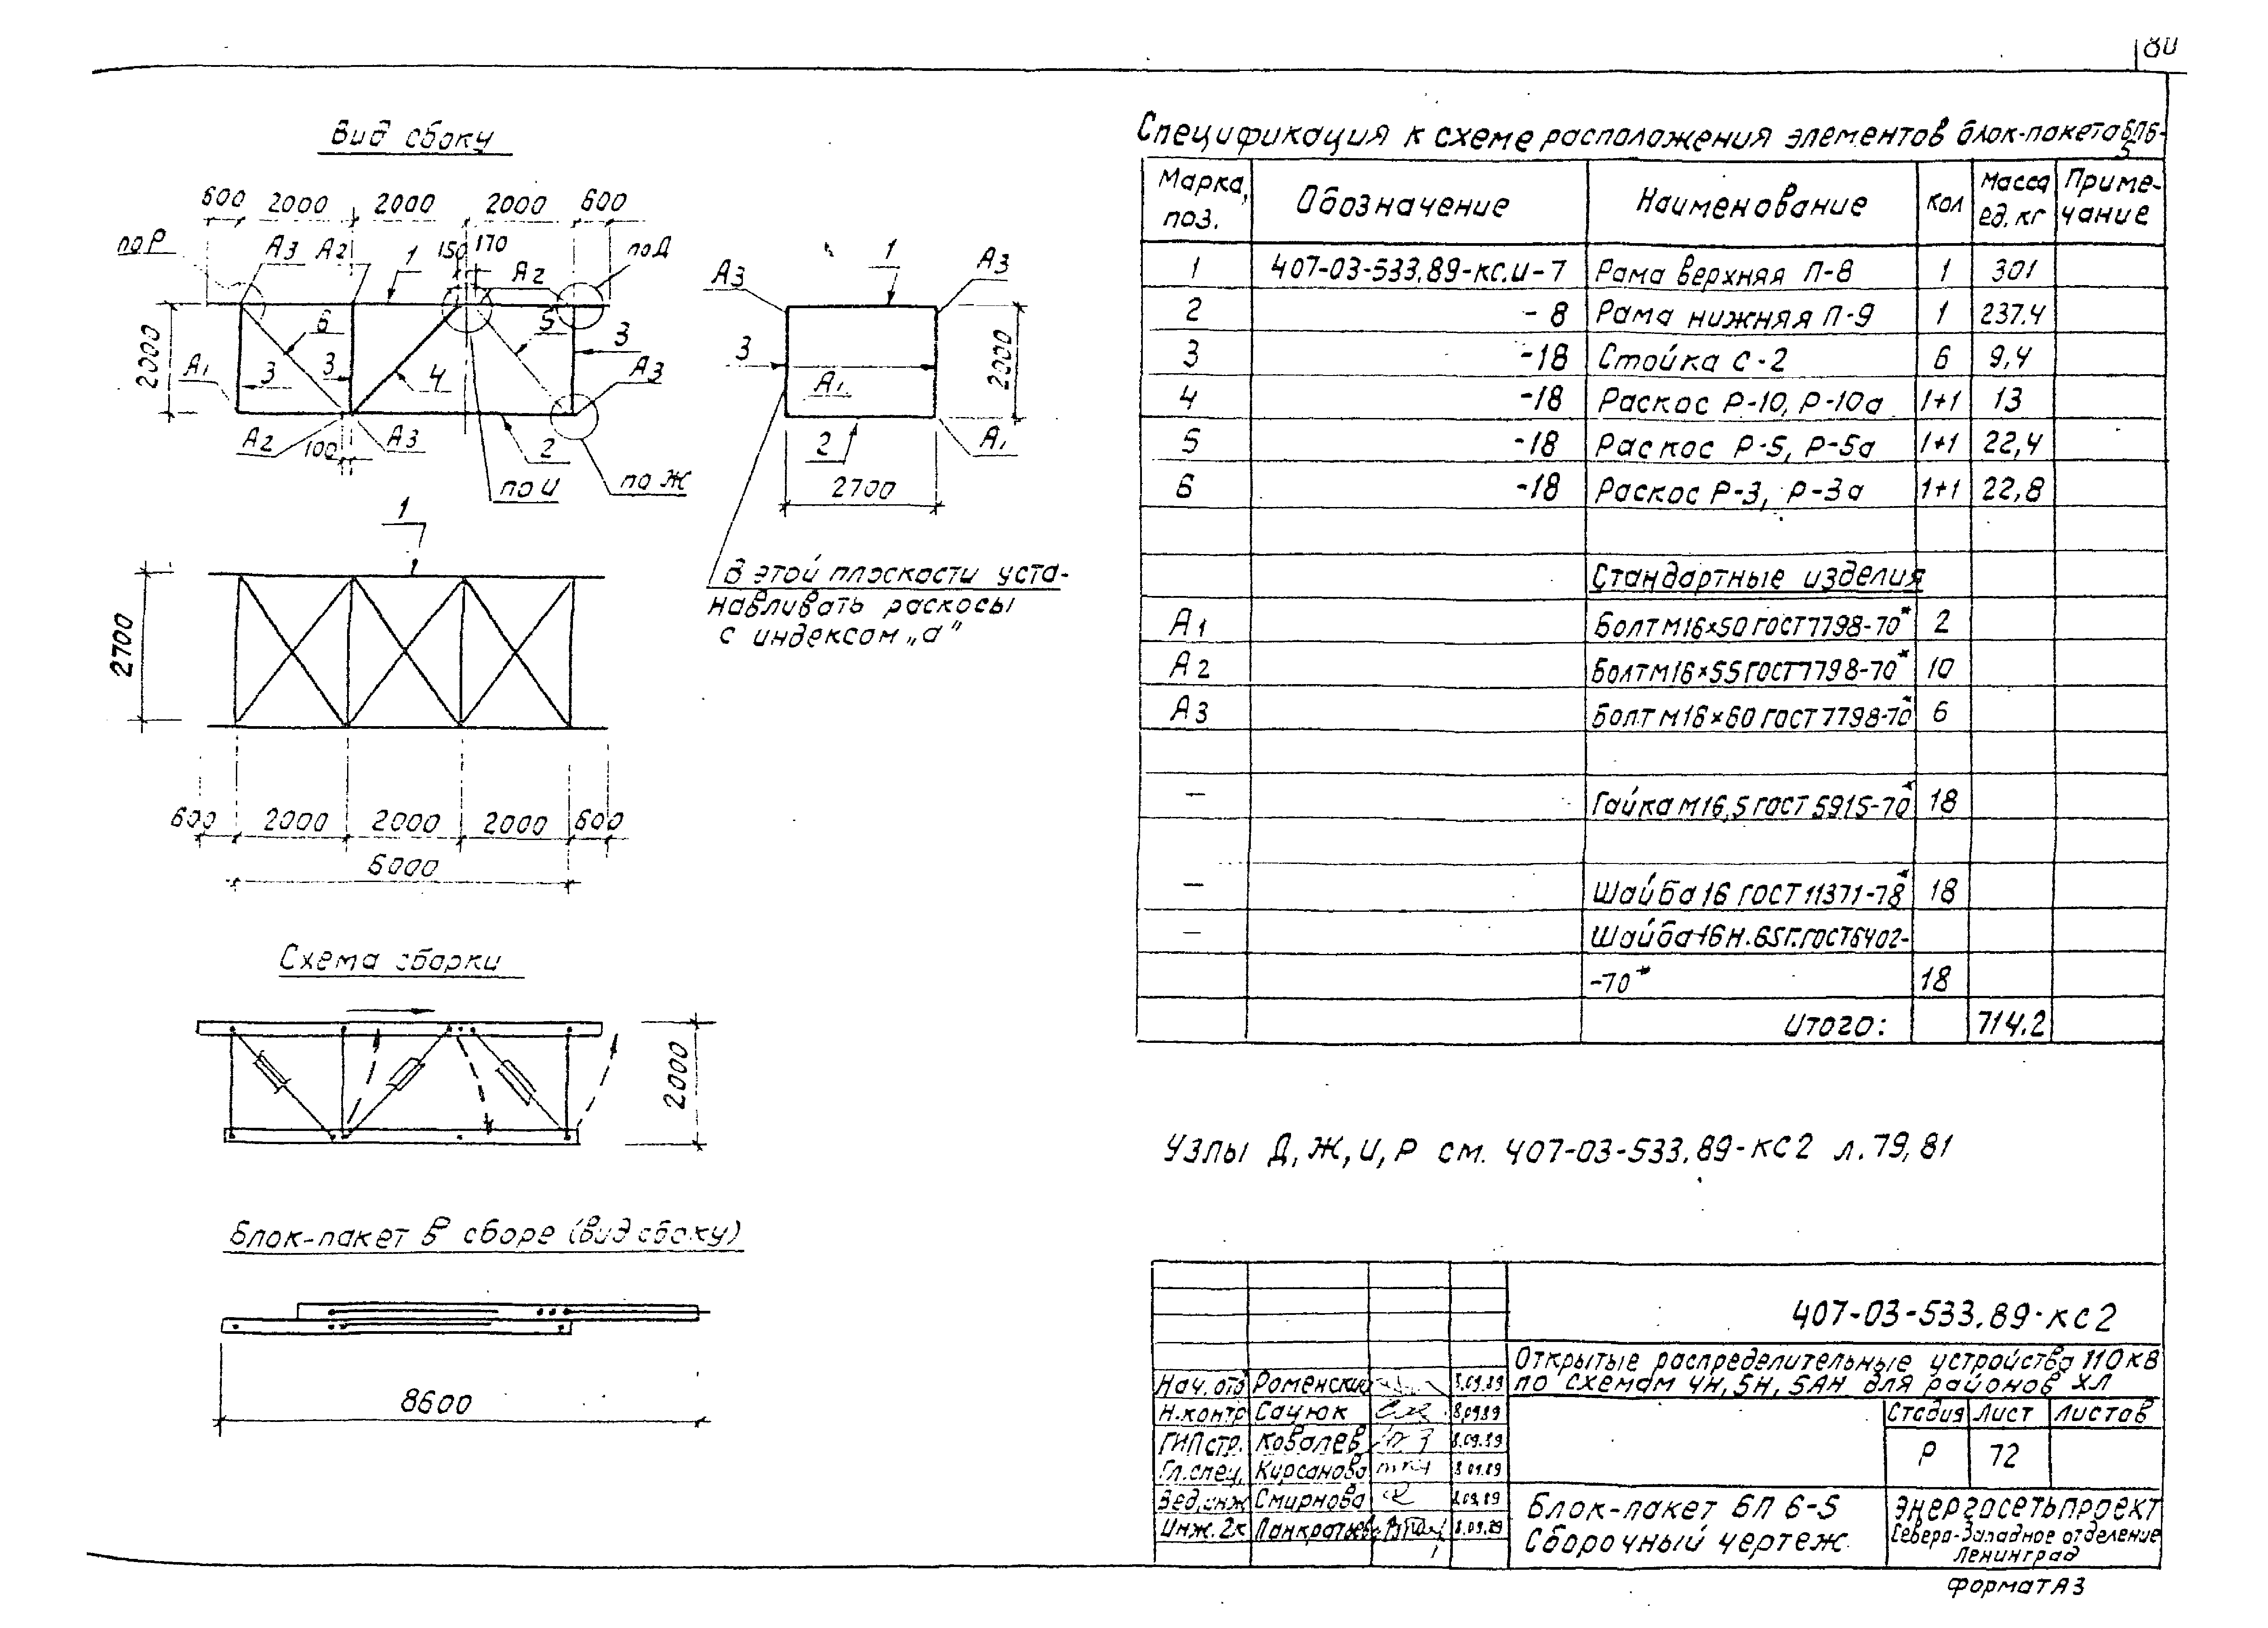 80
Вид сбоку
600 2000 2000 2000 600
по Р А3 А2 1 150 170 А2 по Д
2000 6 5 3
А1 3 3 4 А3
А2 100 А3 2
по И по Ж
1
2700
600 2000 2000 2000 600
6000
А3 1 А3
3 А1 2000
2 А1
2700
В этой плоскости уста-
навливать раскосы
с индексом „а"
Схема сборки
2000
Блок-пакет в сборе (вид сбоку)
8600
Спецификация к схеме расположения элементов блок-пакета БП6-
5
Марка, поз. Обозначение Наименование Кол Масса ед. кг Приме-чание
1 407-03-533.89-КС.И-7 Рама верхняя П-8 1 301
2 -8 Рама нижняя П-9 1 237.4
3 -18 Стойка С-2 6 9,4
4 -18 Раскос Р-10, Р-10а 1+1 13
5 -18 Раскос Р-5, Р-5а 1+1 22,4
6 -18 Раскос Р-3, Р-3а 1+1 22,8
Стандартные изделия
А1 Болт М16×50 ГОСТ 7798-70* 2
А2 Болт М16×55 ГОСТ 7798-70* 10
А3 Болт М16×60 ГОСТ 7798-70* 6
— Гайка М16,5 ГОСТ 5915-70* 18
— Шайба 16 ГОСТ 11371-78* 18
— Шайба 16Н.65Г.ГОСТ 6402-
-70* 18
Итого: 714.2
Узлы Д, Ж, И, Р см. 407-03-533.89-КС2 л. 79, 81
407-03-533.89-КС2
Открытые распределительные устройства 110 кВ
по схемам 4Н, 5Н, 5АН для районов ХЛ
Нач. отд Роменский 8.09.89
Н.контр Сацюк 8.09.89
ГИП стр. Ковалев 8.09.89
Гл. спец. Кирсанова 8.09.89
Вед.инж Смирнова 8.09.89
Инж. 2к 8.09.89
Стадия Лист Листов
Р 72
Блок-пакет БП 6-5
Сборочный чертеж
Энергосетьпроект
Северо-Западное отделение
Ленинград
Формат А3